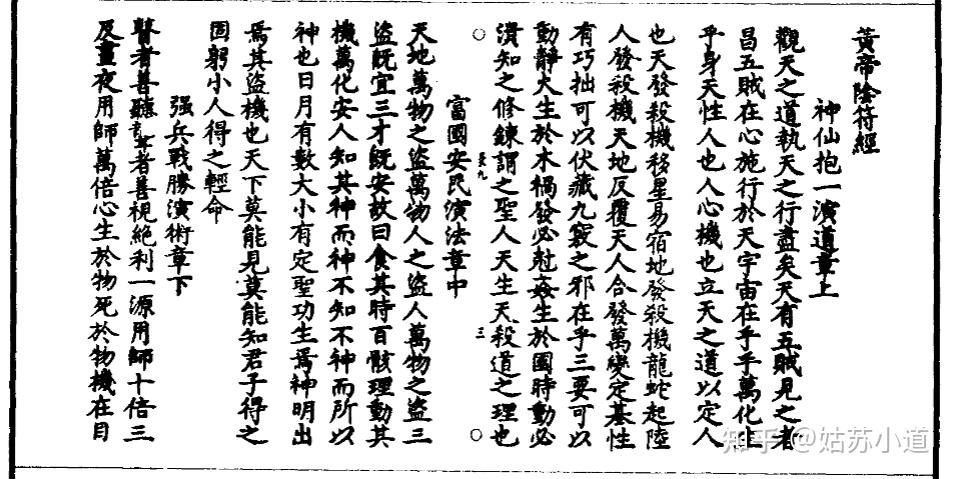 黃帝陰符經
神仙抱一演道章上
觀天之道執天之行盡矣天有五賊見之者
昌五賊在心施行於天宇宙在乎手萬化生
乎身天性人也人心機也立天之道以定人
也天發殺機移星易宿地發殺機龍蛇起陸
人發殺機天地反覆天人合發萬變定基性
有巧拙可以伏藏九竅之邪在乎三要可以
動靜火生於木禍發必尅姦生於國時動必
潰知之修鍊謂之聖人天生天殺道之理也
三
富國安民演法章中
天地萬物之盜萬物人之盜人萬物之盜三
盜既宜三才既安故曰食其時百骸理動其
機萬化安人知其神而神不知不神而所以
神也日月有數大小有定聖功生焉神明出
焉其盜機也天下莫能見莫能知君子得之
固躬小人得之輕命
强兵戰勝演術章下
瞽者善聽聾者善視絕利一源用師十倍三
反晝夜用師萬倍心生於物死於物機在目
知乎 @姑苏小道